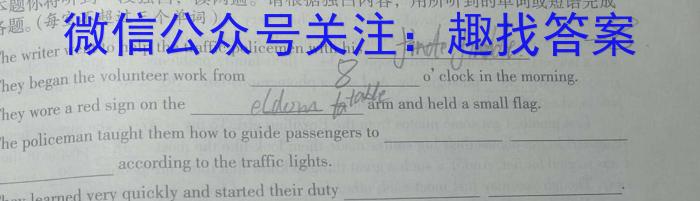 本题你将听到一段独白,读两遍。请根据独白内容,用所听到的单词或短语完成
各题。(每空 个单词)
微信公众号关注:趣找答案
he writer help the traffic policemen with his
hey began the volunteer work from 8 o' clock in the morning.
hey wore a red sign on the arm and held a small flag.
he policeman taught them how to guide passengers to
according to the traffic lights.
hey learned very quickly and started their duty .